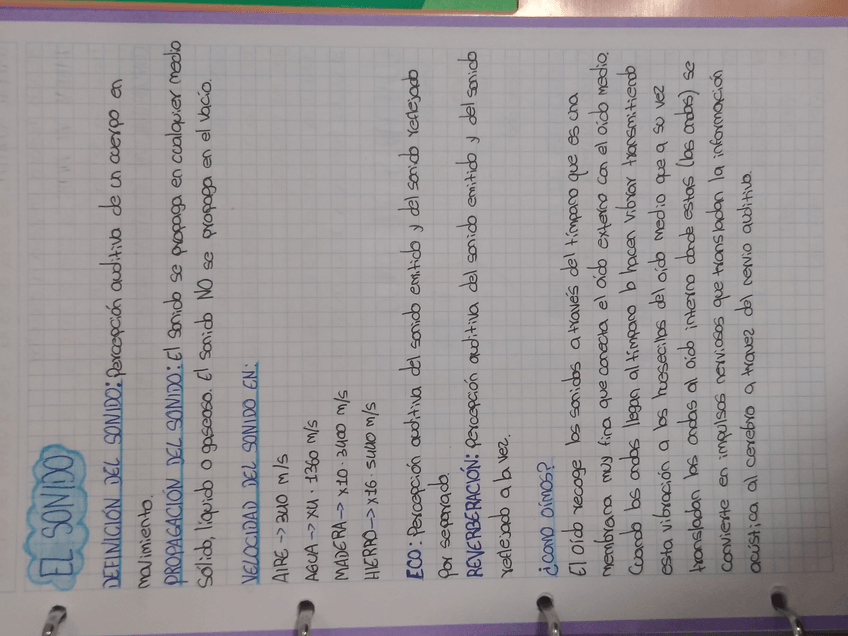 EL SONIDO
DEFINICIÓN DEL SONIDO: Percepción auditiva de un cuerpo en
movimiento.
PROPAGACIÓN DEL SONIDO: El sonido se propaga en cualquier medio
sólido, líquido o gaseoso. El sonido NO se propaga en el vacío.
VELOCIDAD DEL SONIDO EN:
AIRE -> 340 m/s
AGUA -> x4 · 1360 m/s
MADERA -> x10 · 3400 m/s
HIERRO -> x16 · 5440 m/s
ECO: Percepción auditiva del sonido emitido y del sonido reflejado
por separado.
REVERBERACIÓN: Percepción auditiva del sonido emitido y del sonido
reflejado a la vez.
¿como oímos?
El oído recoge los sonidos a través del tímpano que es una
membrana muy fina que conecta el oído externo con el oído medio.
Cuando las ondas llegan al tímpano lo hacen vibrar transmitiendo
esta vibración a los huesecillos del oído medio que a su vez
transladan las ondas al oído interno donde estas (las ondas) se
convierte en impulsos nerviosos que transladan la información
acústica al cerebro a travez del nervio auditivo.